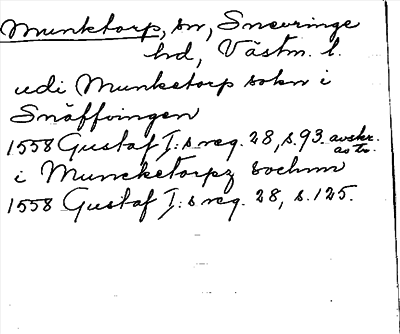 Munktorp, sn, Snevringe
hd, Västm. l.
udi Munketorp sokn i
Snäffvingen
1558 Gustaf I:s reg. 28, s. 93. avskr.
i Muncketorpz sochnn
1558 Gustaf I:s reg. 28, s. 125.